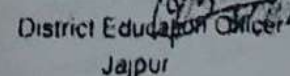 District Education Officer
Jajpur